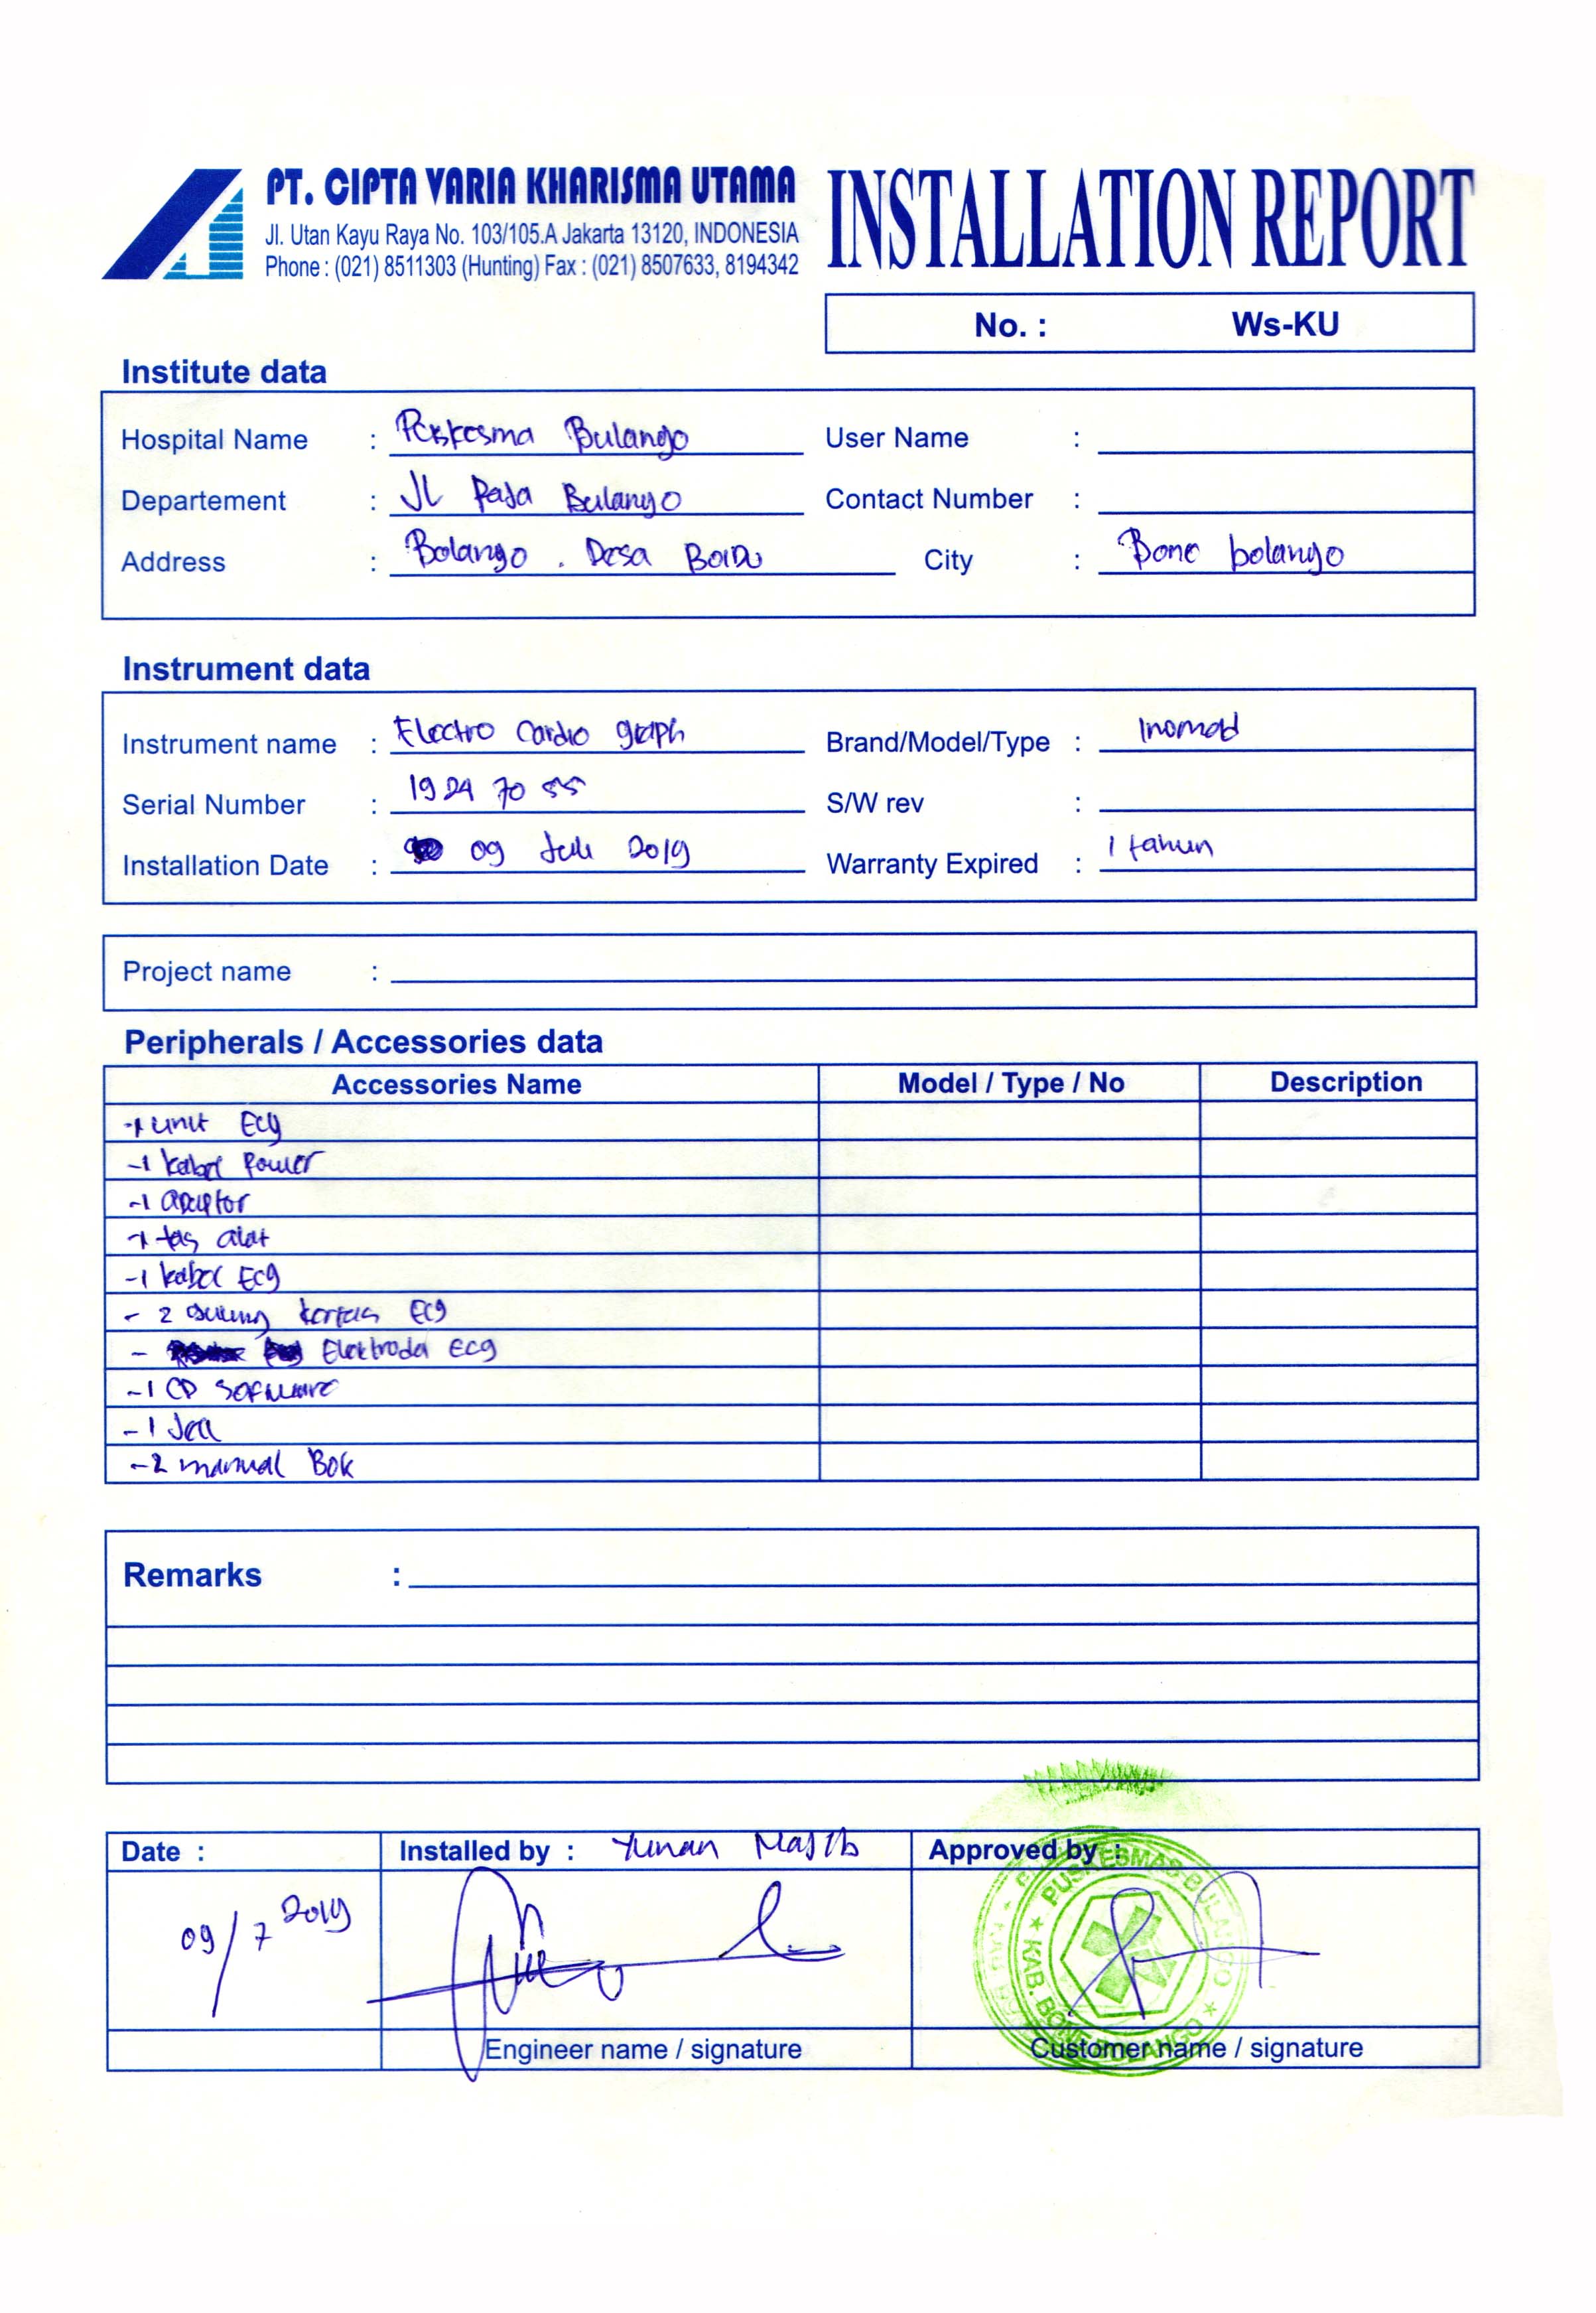 PT. CIPTA VARIA KHARISMA UTAMA
Jl. Utan Kayu Raya No. 103/105.A Jakarta 13120, INDONESIA
Phone : (021) 8511303 (Hunting) Fax : (021) 8507633, 8194342
INSTALLATION REPORT
No. : Ws-KU
Institute data
Hospital Name : Puskesma Bulango User Name :
Departement : JL Raja Bulango Contact Number :
Address : Bolango . Desa City : Bone bolango
Instrument data
Instrument name : Electro Cardio graph Brand/Model/Type : Inomed
Serial Number : 1924 70 55 S/W rev :
Installation Date : 09 Juli 2019 Warranty Expired : 1 tahun
Project name :
Peripherals / Accessories data
Accessories Name Model / Type / No Description
-1 unit Ecg
-1 kabel Power
-1 adaptor
-1 tas alat
-1 kabel Ecg
- 2 kertas Ecg
- Elektroda Ecg
-1 CD Sofware
-1 Jell
-2 manual Bok
Remarks :
Date : Installed by : Yunan Approved by :
09/7 2019
PUSKESMAS BULANGO
KAB. BONE BOLANGO
Engineer name / signature Customer name / signature